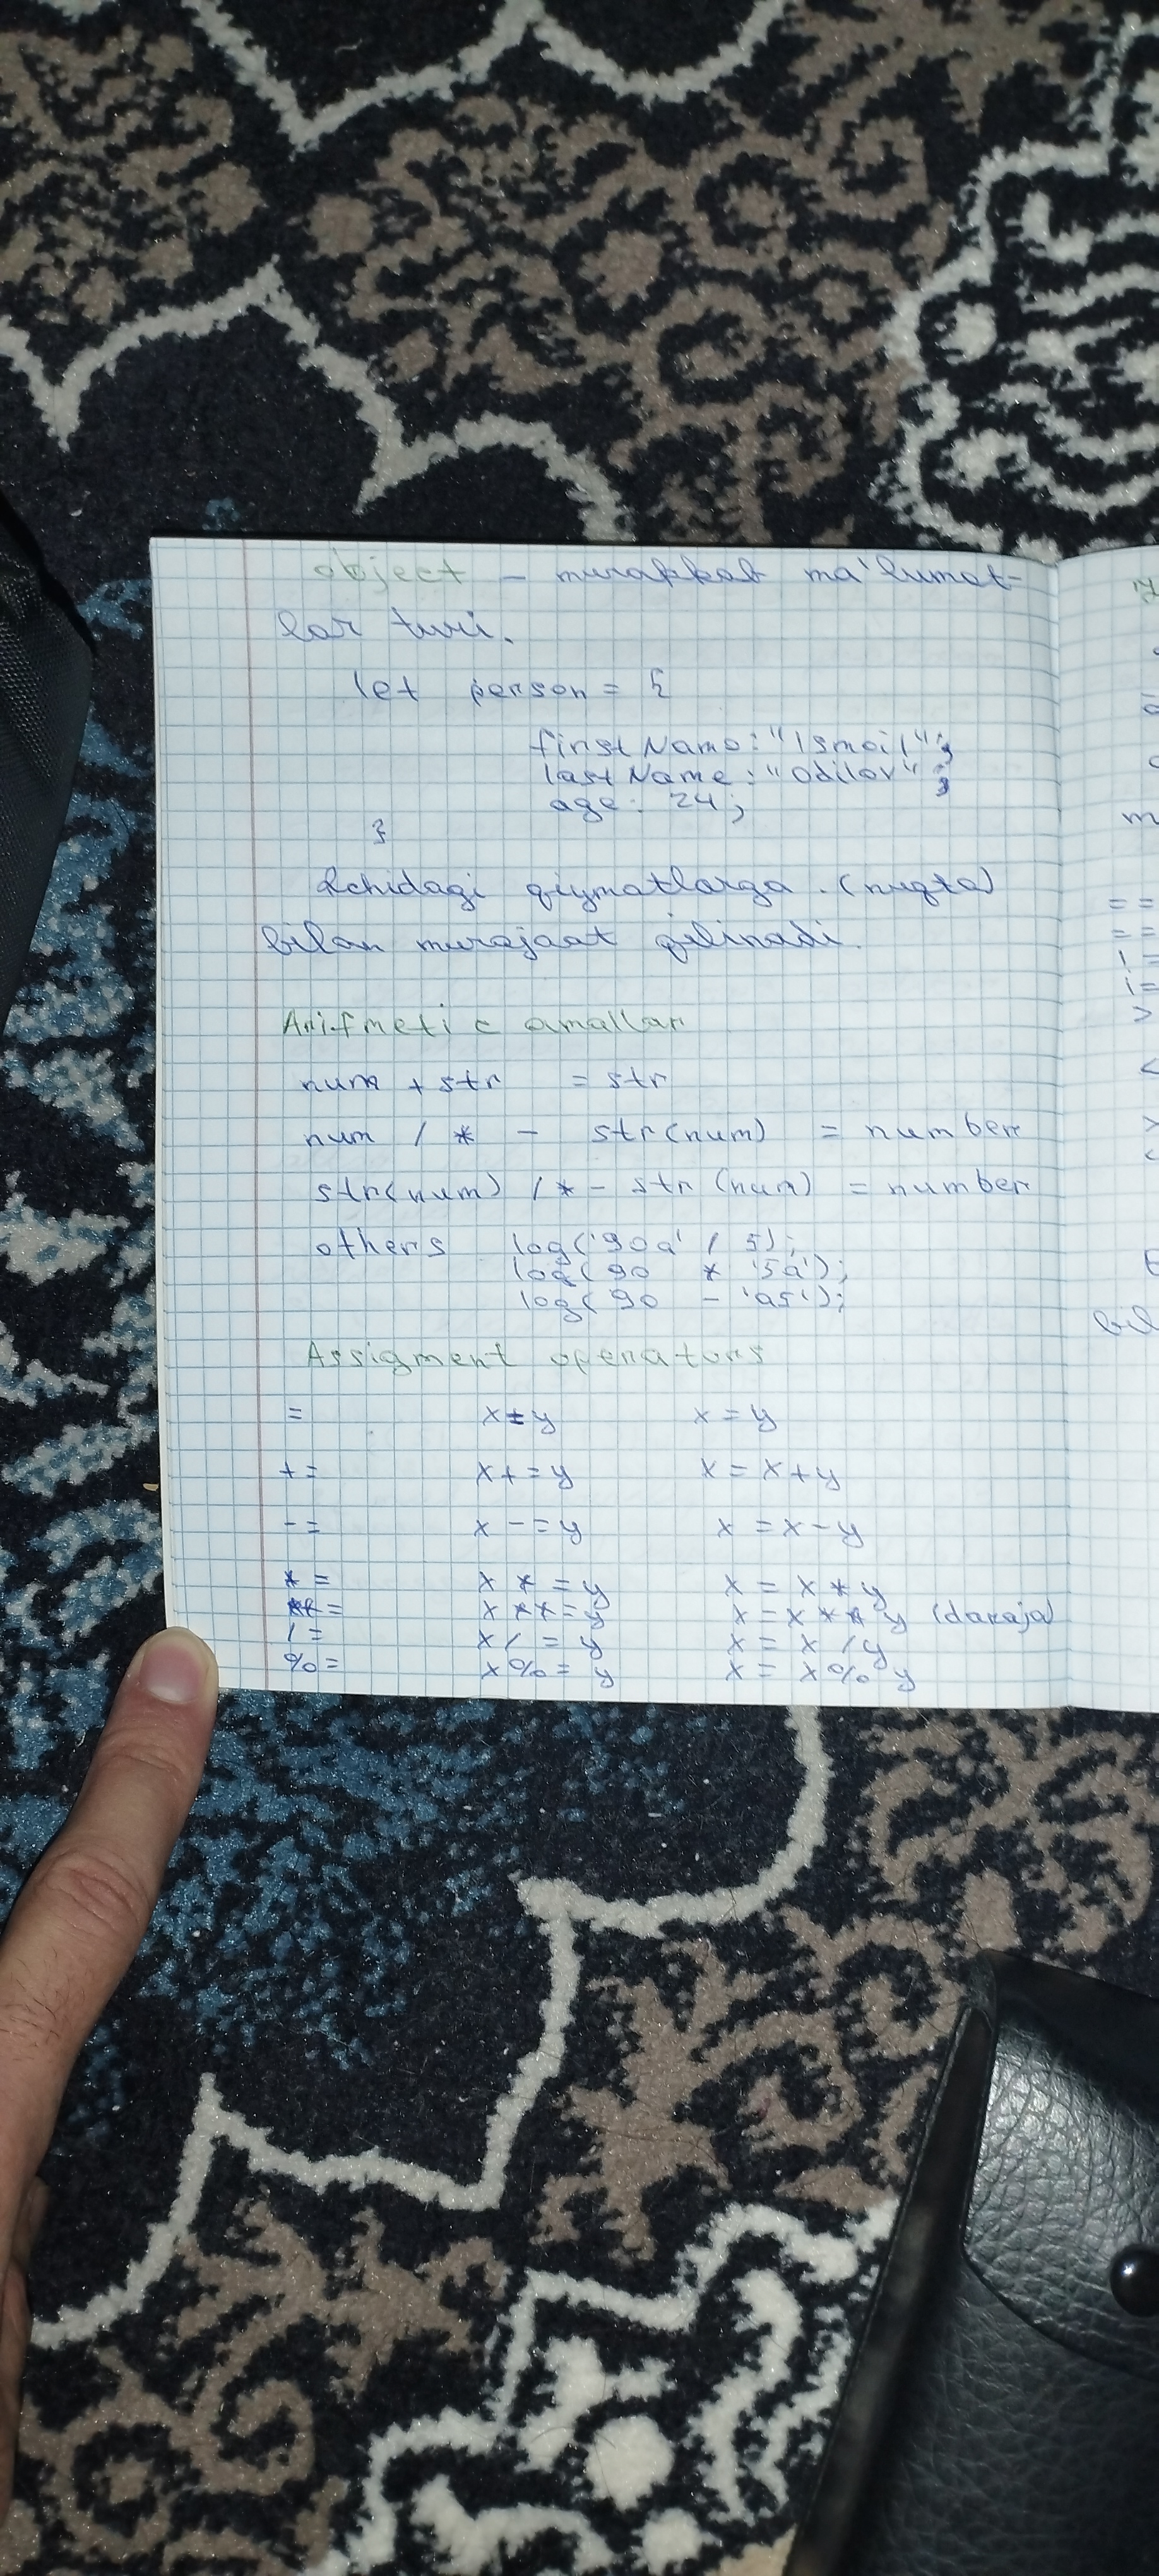 object - murakkab ma'lumot-
lar turi.
let person = {
firstName: "Ismoil";
lastName: "Odilov";
age: 24;
}
Ichidagi qiymatlarga .(nuqta)
bilan murojaat qilinadi.
Arifmetic amallar
num + str = str
num / * - str(num) = number
str(num) / * - str(num) = number
others log('90a' / 5);
log(90 * '5a');
log(90 - 'a5');
Assigment operators
= x=y x=y
+= x+=y x=x+y
-= x-=y x=x-y
*= x*=y x=x*y
**= x**=y x=x**y (daraja)
/= x/=y x=x/y
%= x%=y x=x%y